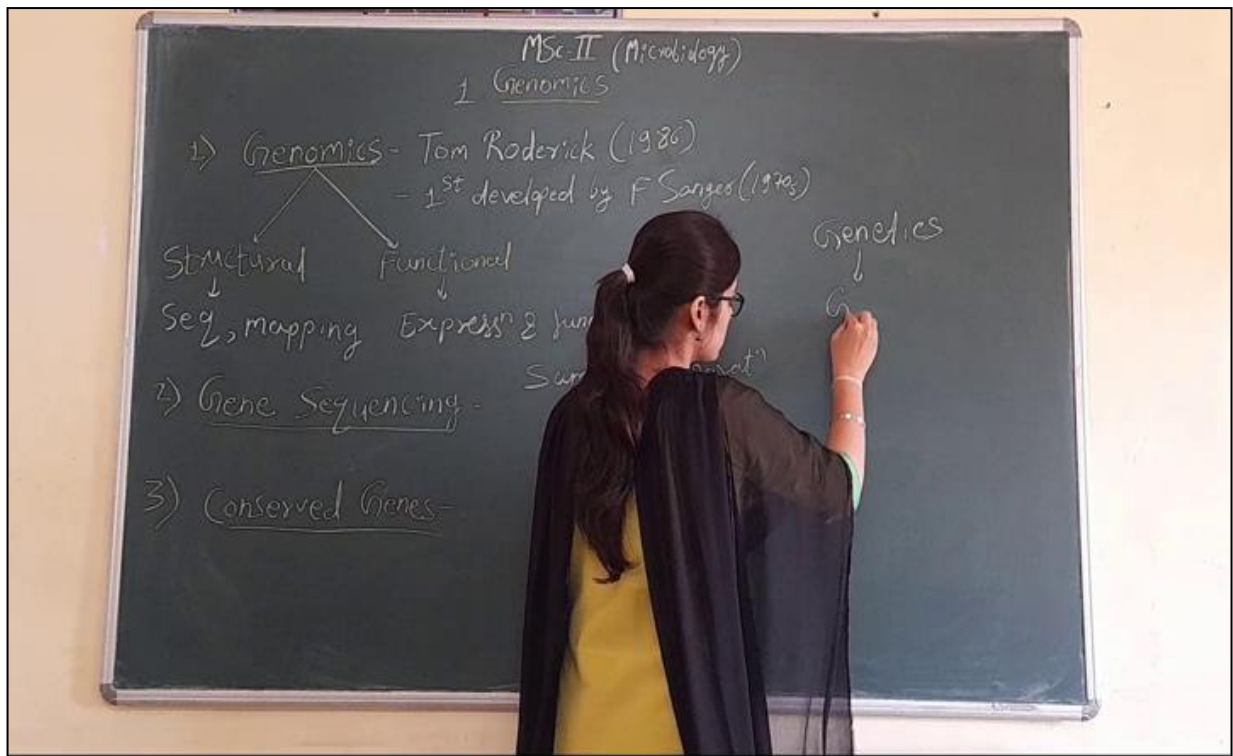 MSc-II (Microbiology)
1 Genomics
1) Genomics - Tom Roderick (1986)
- 1st developed by F Sanger (1970s)
Genetics
Structural Functional
G
Seq, mapping Expressn & func
2) Gene Sequencing -
3) Conserved Genes -